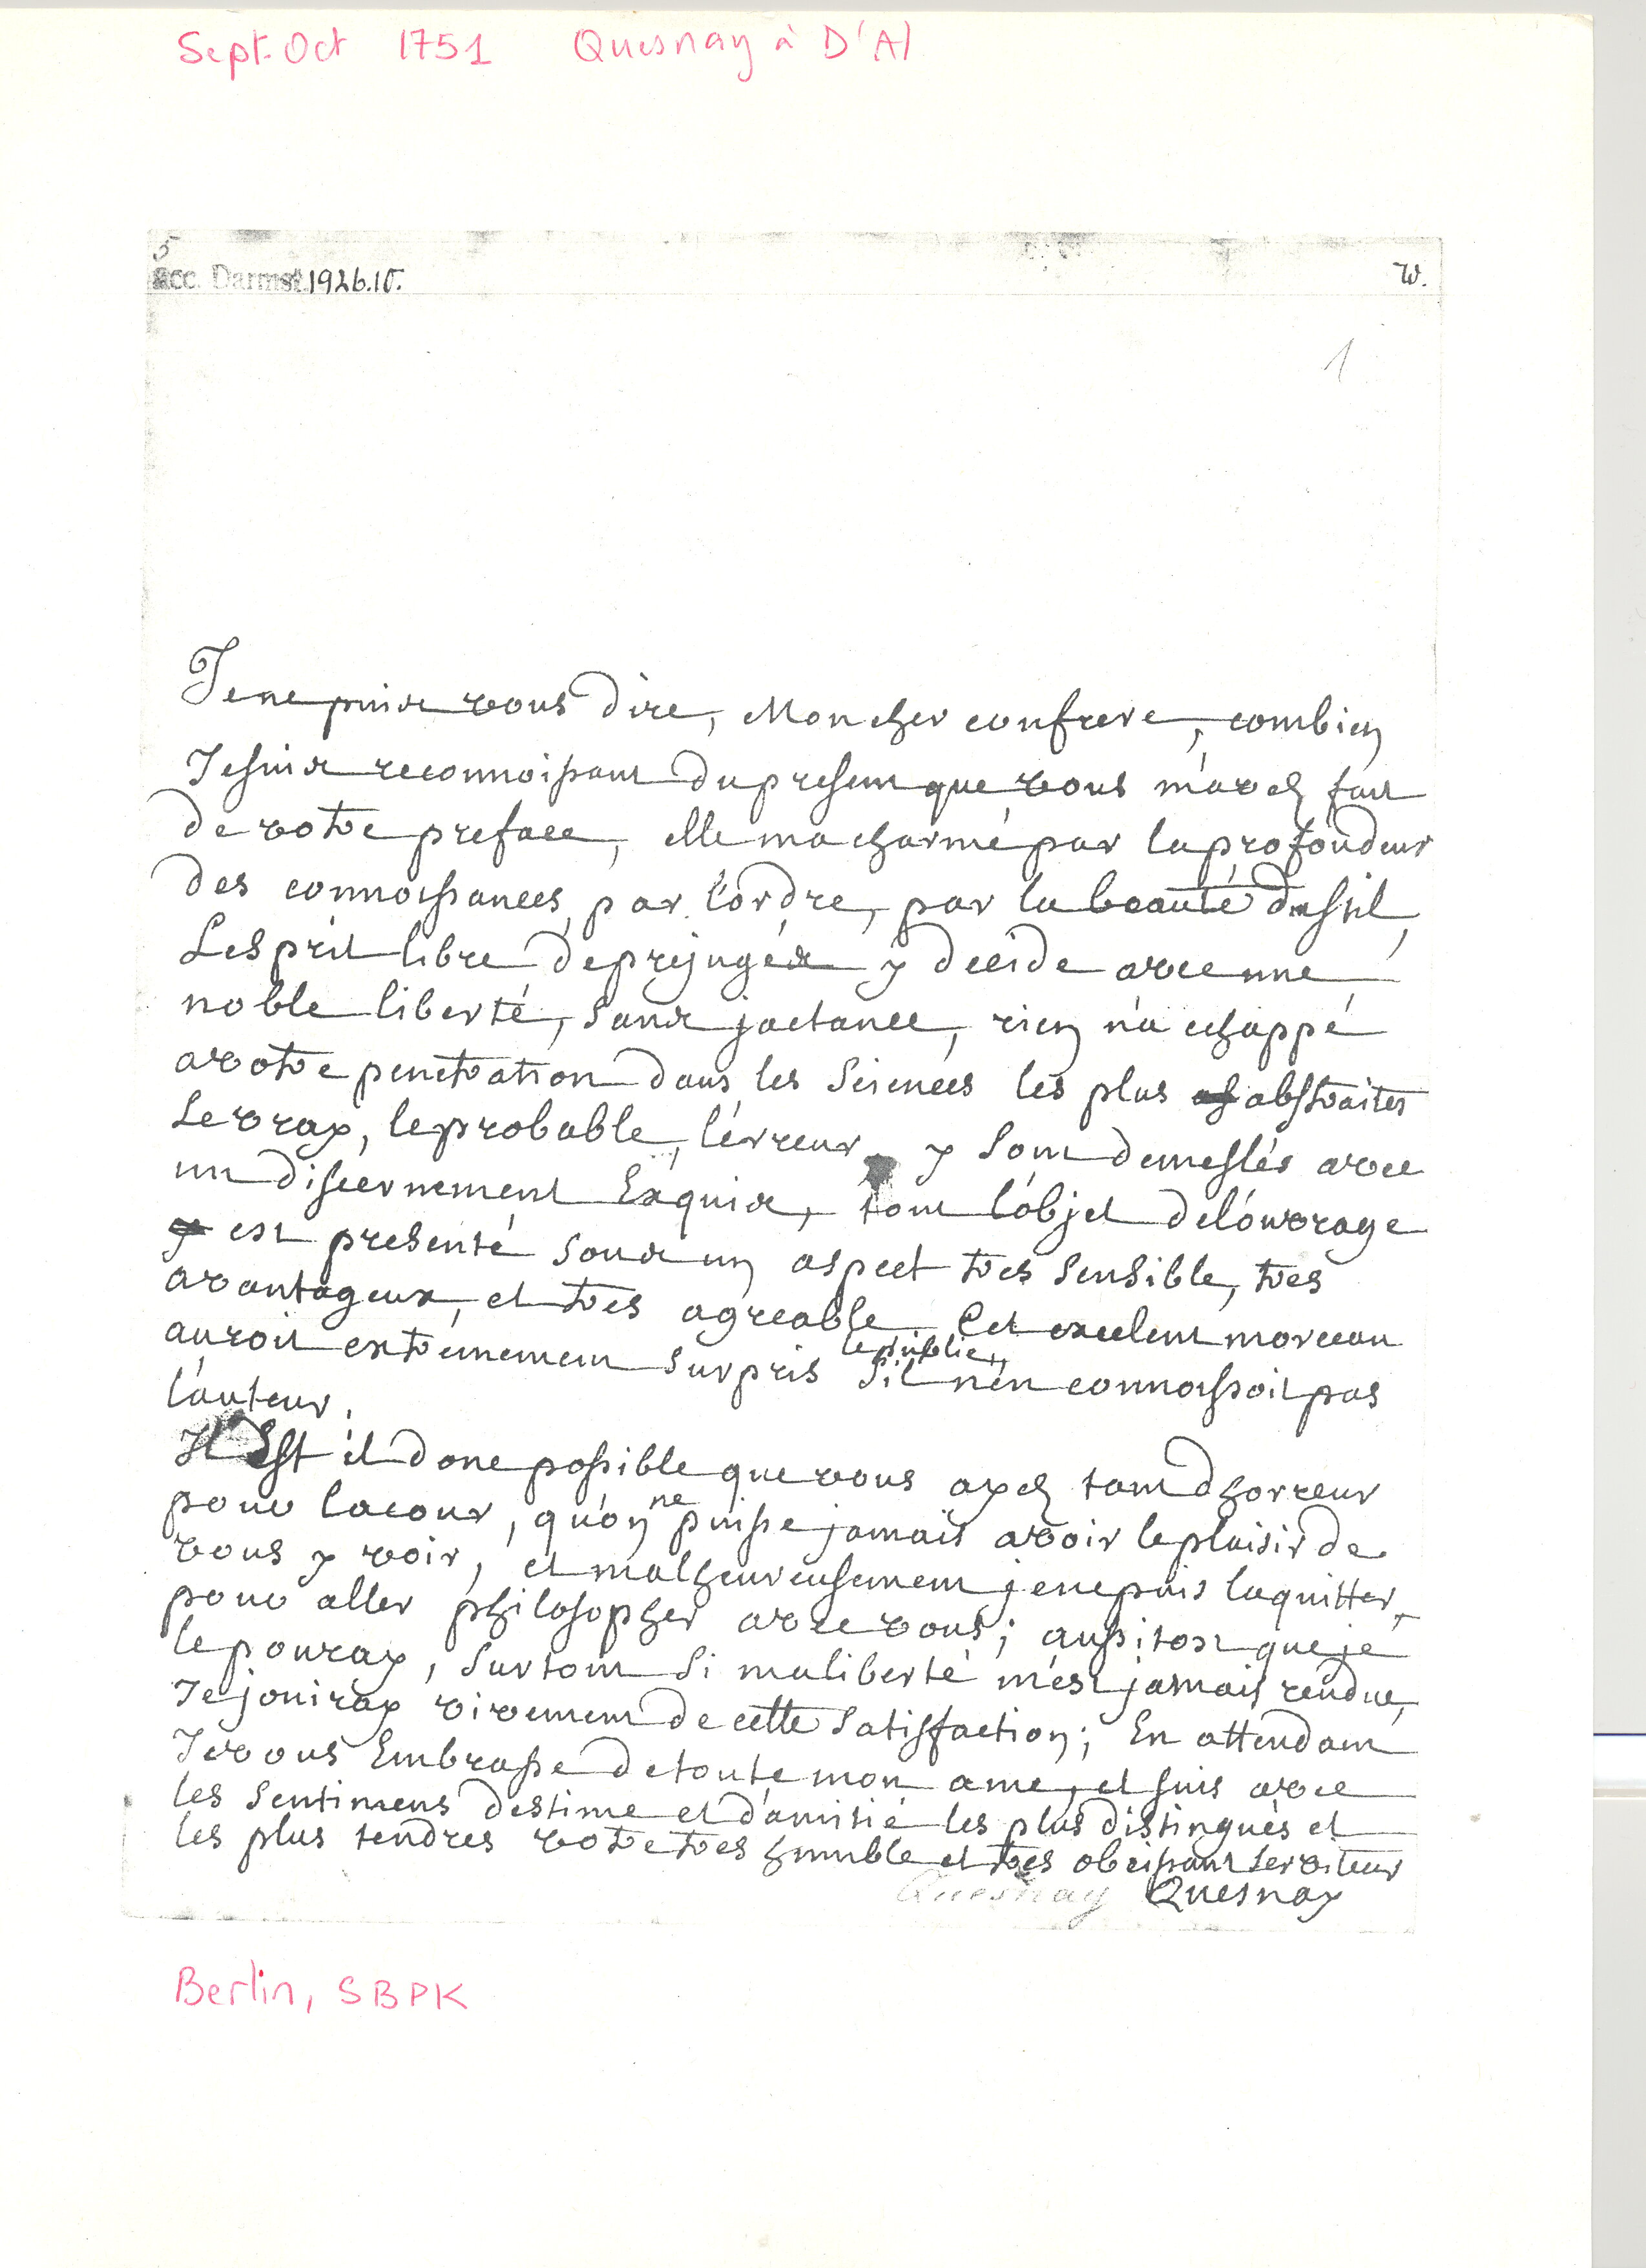 Sept-Oct 1751 Quesnay à D'Al
5
acc. Darmst. 1926.10.
W.
1
Je ne puis vous dire, Mon cher confrere, combien
Je suis reconnoissant du present que vous m'avez fait
de votre preface, elle ma charmé par la profondeur
des connoissances, par l'ordre, par la beauté du stil,
Lesprit libre de prejugés y decide avec une
noble liberté, sans jactance, rien n'a echappé
a votre penetration dans les Sciences les plus abstraites
Le vray, le probable, l'erreur y sont demeslés avec
un discernement Exquis, tout l'objet de l'ouvrage
y est presenté sous un aspect tres sensible, tres
avantageux, et tres agreable. Cet excelent morceau
auroit extremement surpris le public s'il n'en connoissoit pas
l'auteur.
Il Est il donc possible que vous ayez tant d'horreur
pour la cour, qu'on ne puisse jamais avoir le plaisir de
vous y voir, et malheureusement je ne puis la quitter,
pour aller philosopher avec vous; aussitost que je
le pouray, surtout si ma liberté m'est jamais rendue,
Je jouiray vivement de cette satisfaction; En attendant
Je vous Embrasse de toute mon ame, et suis avec
les sentimens destime et d'amitié les plus distingués et
les plus tendres votre tres humble et tres obeissant serviteur
Quesnay Quesnay
Berlin, SBPK